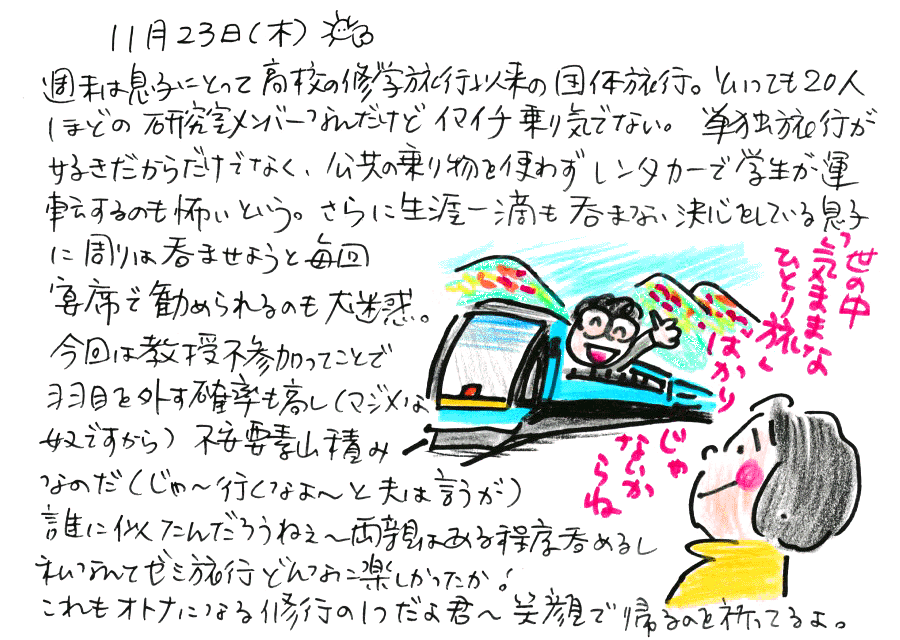 11月23日(木)
週末は息子にとって高校の修学旅行以来の団体旅行。といっても20人
ほどの研究室メンバーなんだけどイマイチ乗り気でない。単独旅行が
好きだからだけでなく、公共の乗り物を使わずレンタカーで学生が運
転するのも怖いという。さらに生涯一滴も呑まない決心をしている息子
に周りは呑ませようと毎回
宴席で勧められるのも大迷惑。
今回は教授不参加ってことで
羽目を外す確率も高し(マジメな
奴ですから)不安要素山積み
なのだ(じゃ〜行くなよ〜と夫は言うが)
誰に似たんだろうねぇ〜両親はある程度呑めるし
私なんてゼミ旅行どんなに楽しかったか!
これもオトナになる修行の1つだよ君〜笑顔で帰るのを祈ってるよ。
世の中
「気ままな
ひとり旅」
ばかり
じゃ
ないか
らね